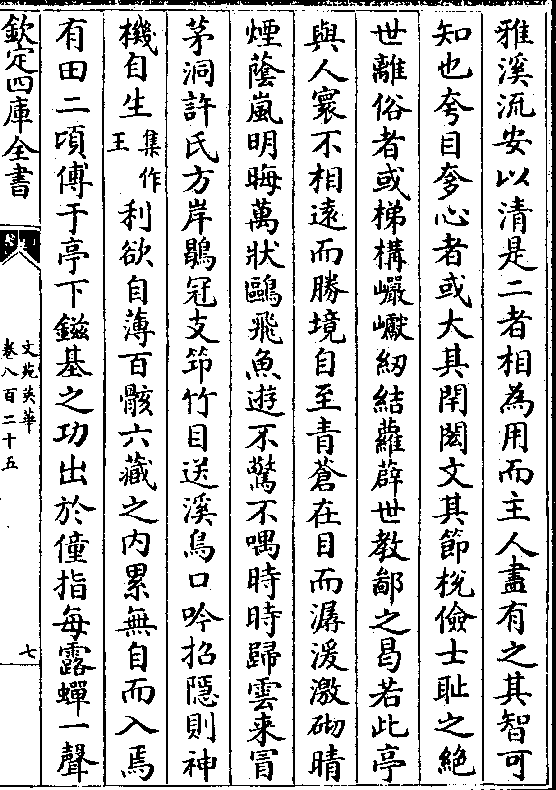 雅溪流安以清是二者相為用而主人盡有之其智可
知也夸目奓心者或大其閈閎文其節梲儉士恥之絶
世離俗者或梯構巉巘紉結蘿薜世教鄙之曷若此亭
與人寰不相遠而勝境自至青蒼在目而潺湲激砌晴
煙蔭嵐明晦萬狀鷗飛魚遊不驚不喁時時歸雲来冒
茅洞許氏方岸鶡冠支笻竹目送溪鳥口吟招隱則神
機自生集作王利欲自薄百骸六藏之内累無自而入焉
有田二頃傅于亭下鎡基之功出於僮指每露蟬一聲
欽定四庫全書
文苑英華
卷八百二十五
七